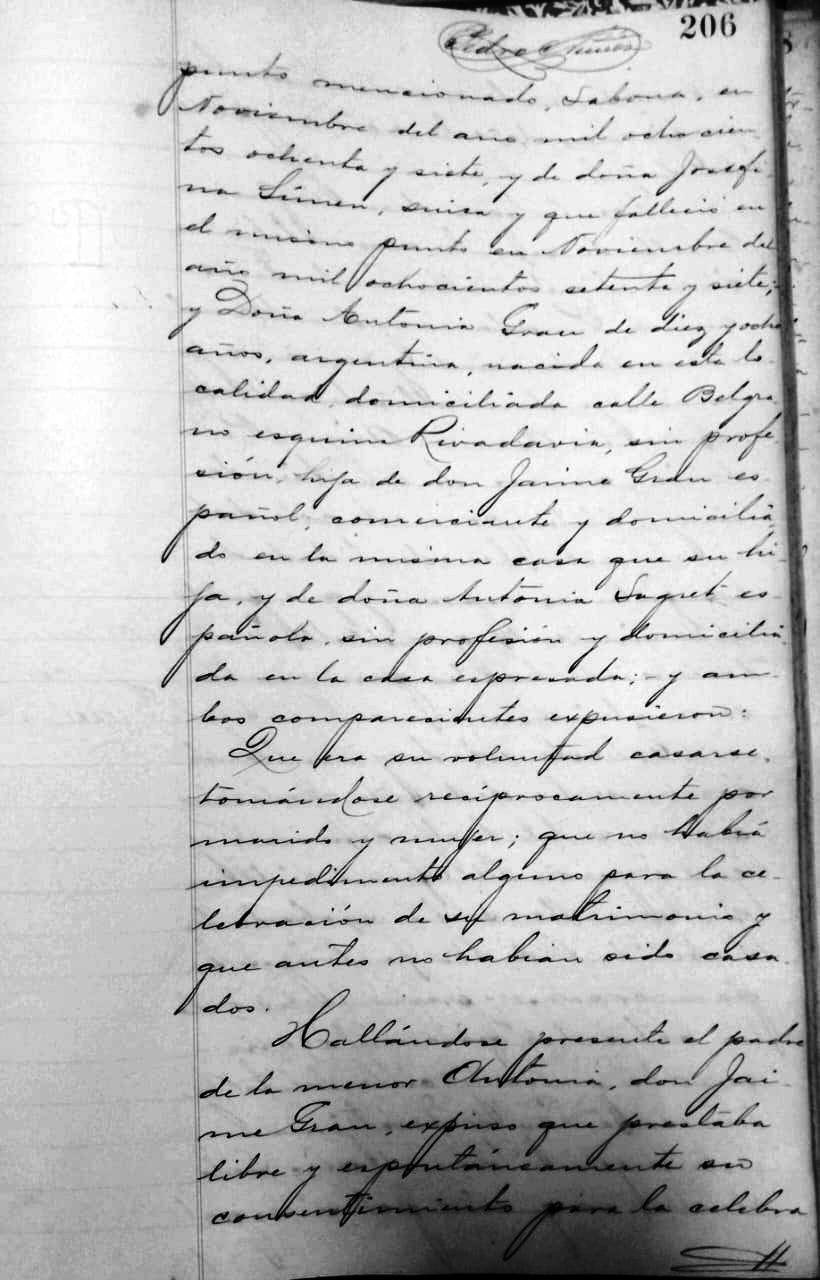 206
Pedro Nuñes
punto mencionado, Sabona, en
Noviembre del año mil ochocien
tos ochenta y siete, y de doña Josefi
na Simen, suiza y que falleció en
el mismo punto en Noviembre del
año mil ochocientos setenta y siete;
y Doña Antonia Grau de diez y ocho
años, argentina, nacida en esta lo-
calidad, domiciliada calle Belgra
no esquina Rivadavia, sin profe
sión, hija de don Jaime Grau es-
pañol, comerciante y domicilia
do en la misma casa que su hi-
ja, y de doña Antonia Sagret es-
pañola, sin profesión y domicilia
da en la casa espresada; y am-
bos comparesientes expusieron:
Que era su voluntad casarse,
tomándose recíprocamente por
marido y mujer; que no habia
impedimento alguno para la ce-
lebración de su matrimonio y
que antes no habian sido casa-
dos.
Hallándose presente el padre
de la menor Antonia, don Jai-
me Grau, expuso que prestaba
libre y espontáneamente su
consentimiento para la celebra